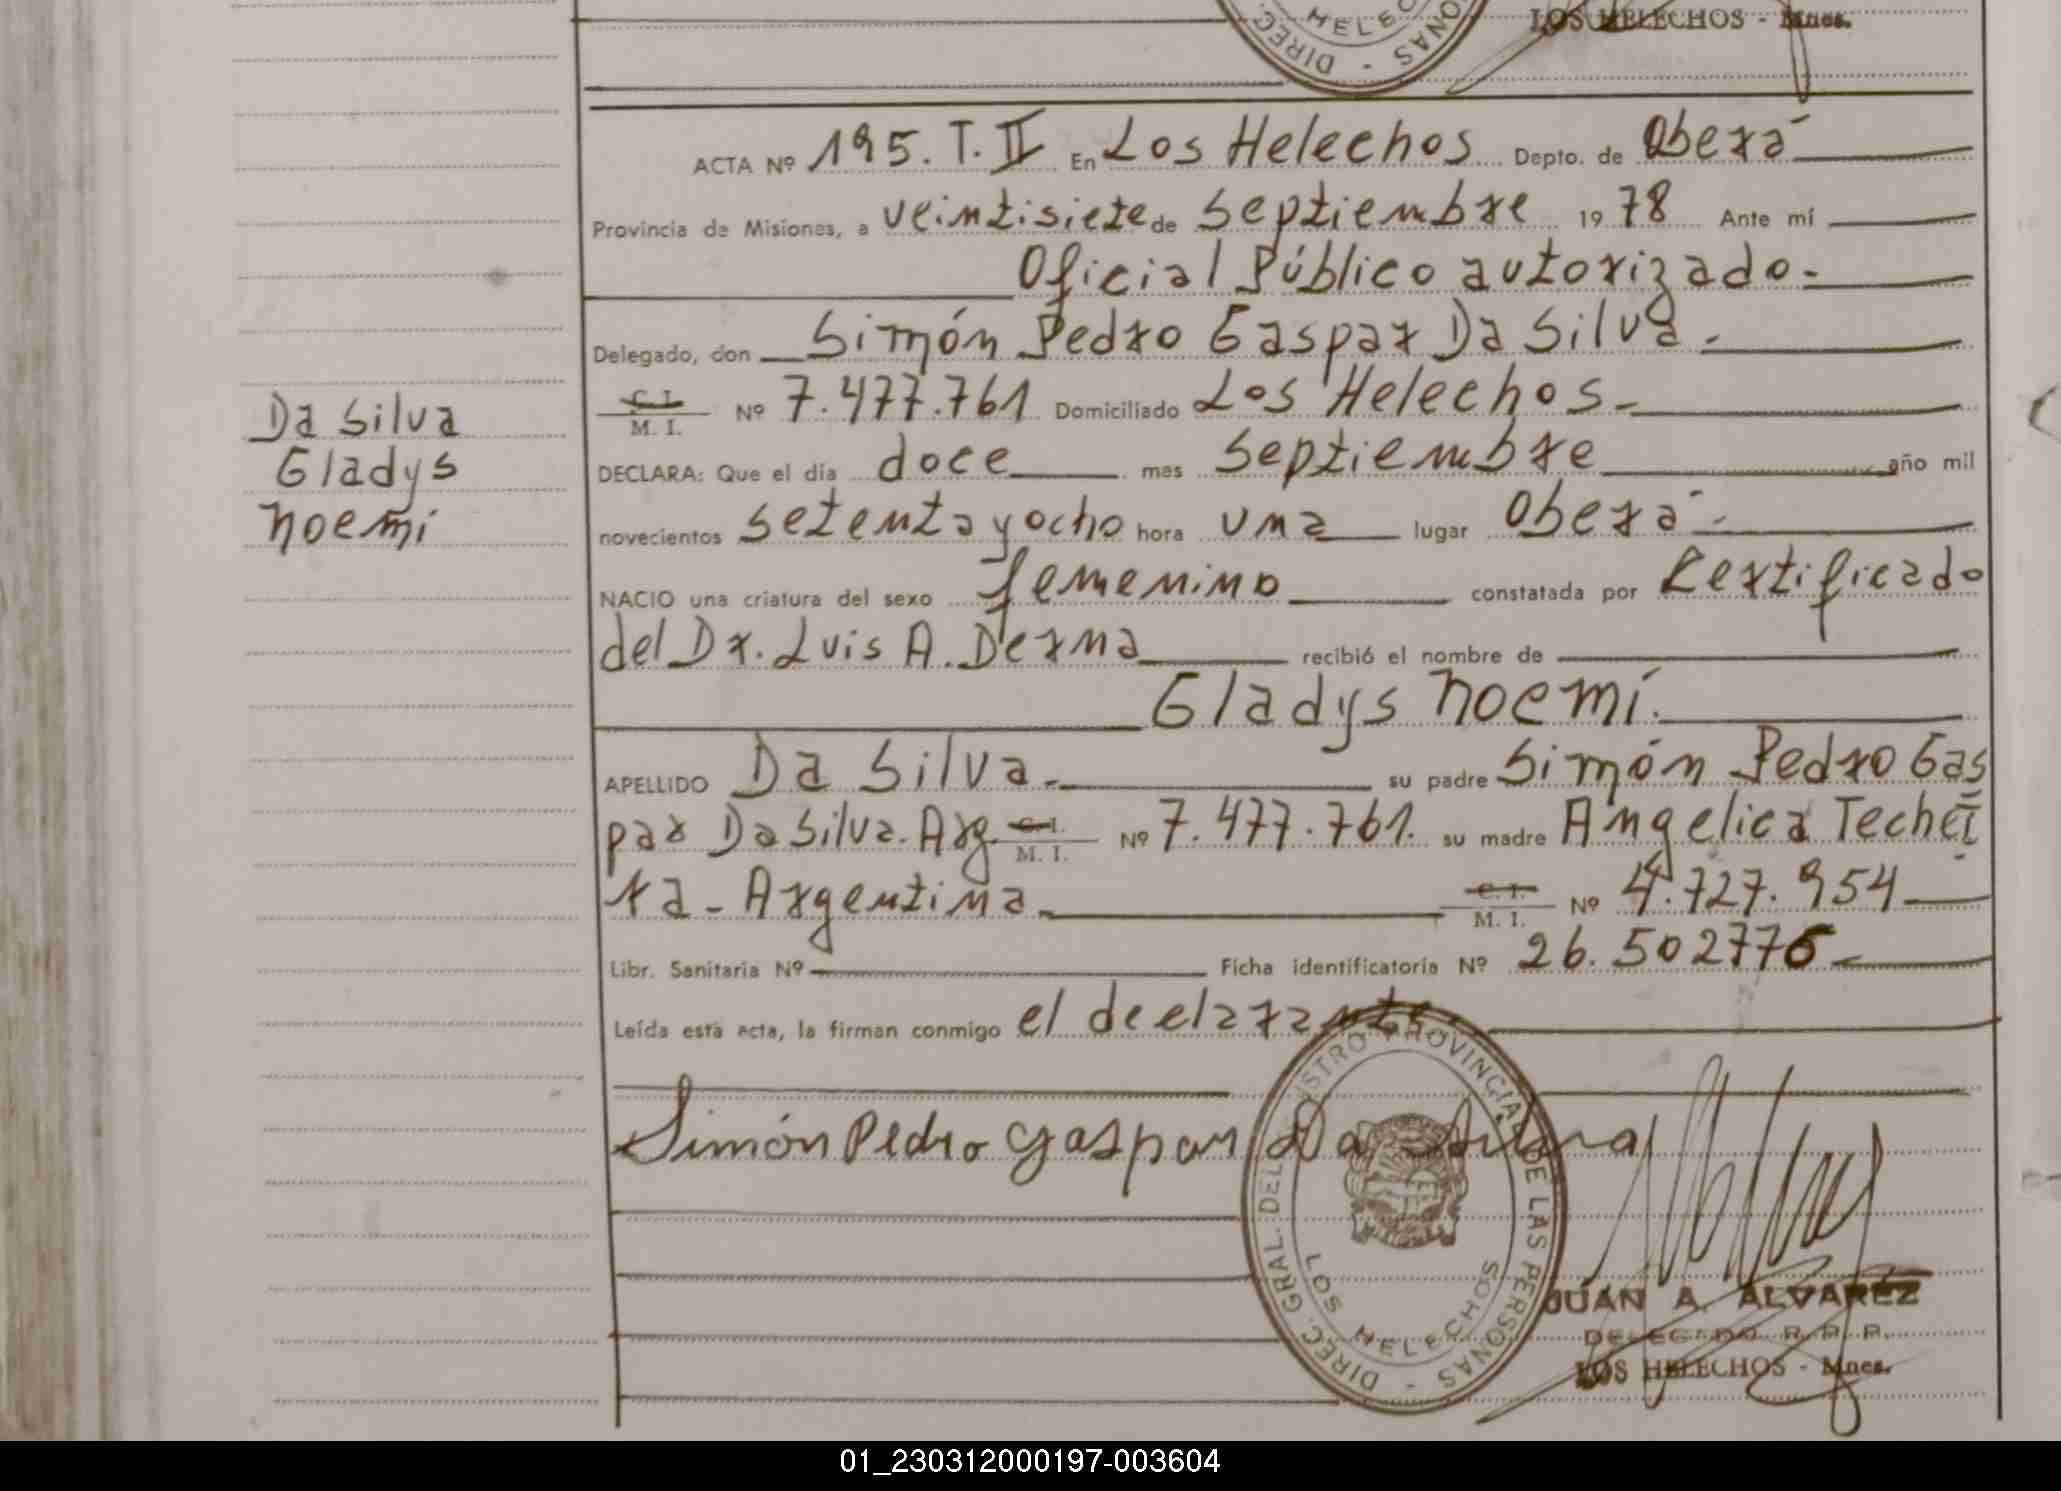 HELECHOS
DIREC. PERSONAS -
LOS HELECHOS - Mnes.
ACTA Nº 195. T. II En Los Helechos Depto. de Oberá
Provincia de Misiones, a veintisiete de Septiembre 1978 Ante mí
Oficial Público autorizado.-
Delegado, don Simón Pedro Gaspar Da Silva.-
C. I. / M. I. Nº 7.477.761 Domiciliado Los Helechos.-
Da Silva
Gladys
Noemí
DECLARA: Que el día doce mes Septiembre año mil
novecientos setenta y ocho hora una lugar Oberá.-
NACIO una criatura del sexo femenino constatada por Certificado
del Dr. Luis A. Derna recibió el nombre de
Gladys Noemí.
APELLIDO Da Silva.- su padre Simón Pedro Gas
par Da Silva. Arg. C. I. / M. I. Nº 7.477.761. su madre Angelica Techei
ra - Argentina.- C. I. / M. I. Nº 4.727.954
Libr. Sanitaria Nº Ficha identificatoria Nº 26.502776.-
Leída esta acta, la firman conmigo el declarante.
Simón Pedro Gaspar Da Silva
DIREC. GRAL. DEL REGISTRO PROVINCIAL DE LAS PERSONAS -
LOS HELECHOS
JUAN A. ALVAREZ
DELEGADO R. P. P.
LOS HELECHOS - Mnes.
01_230312000197-003604